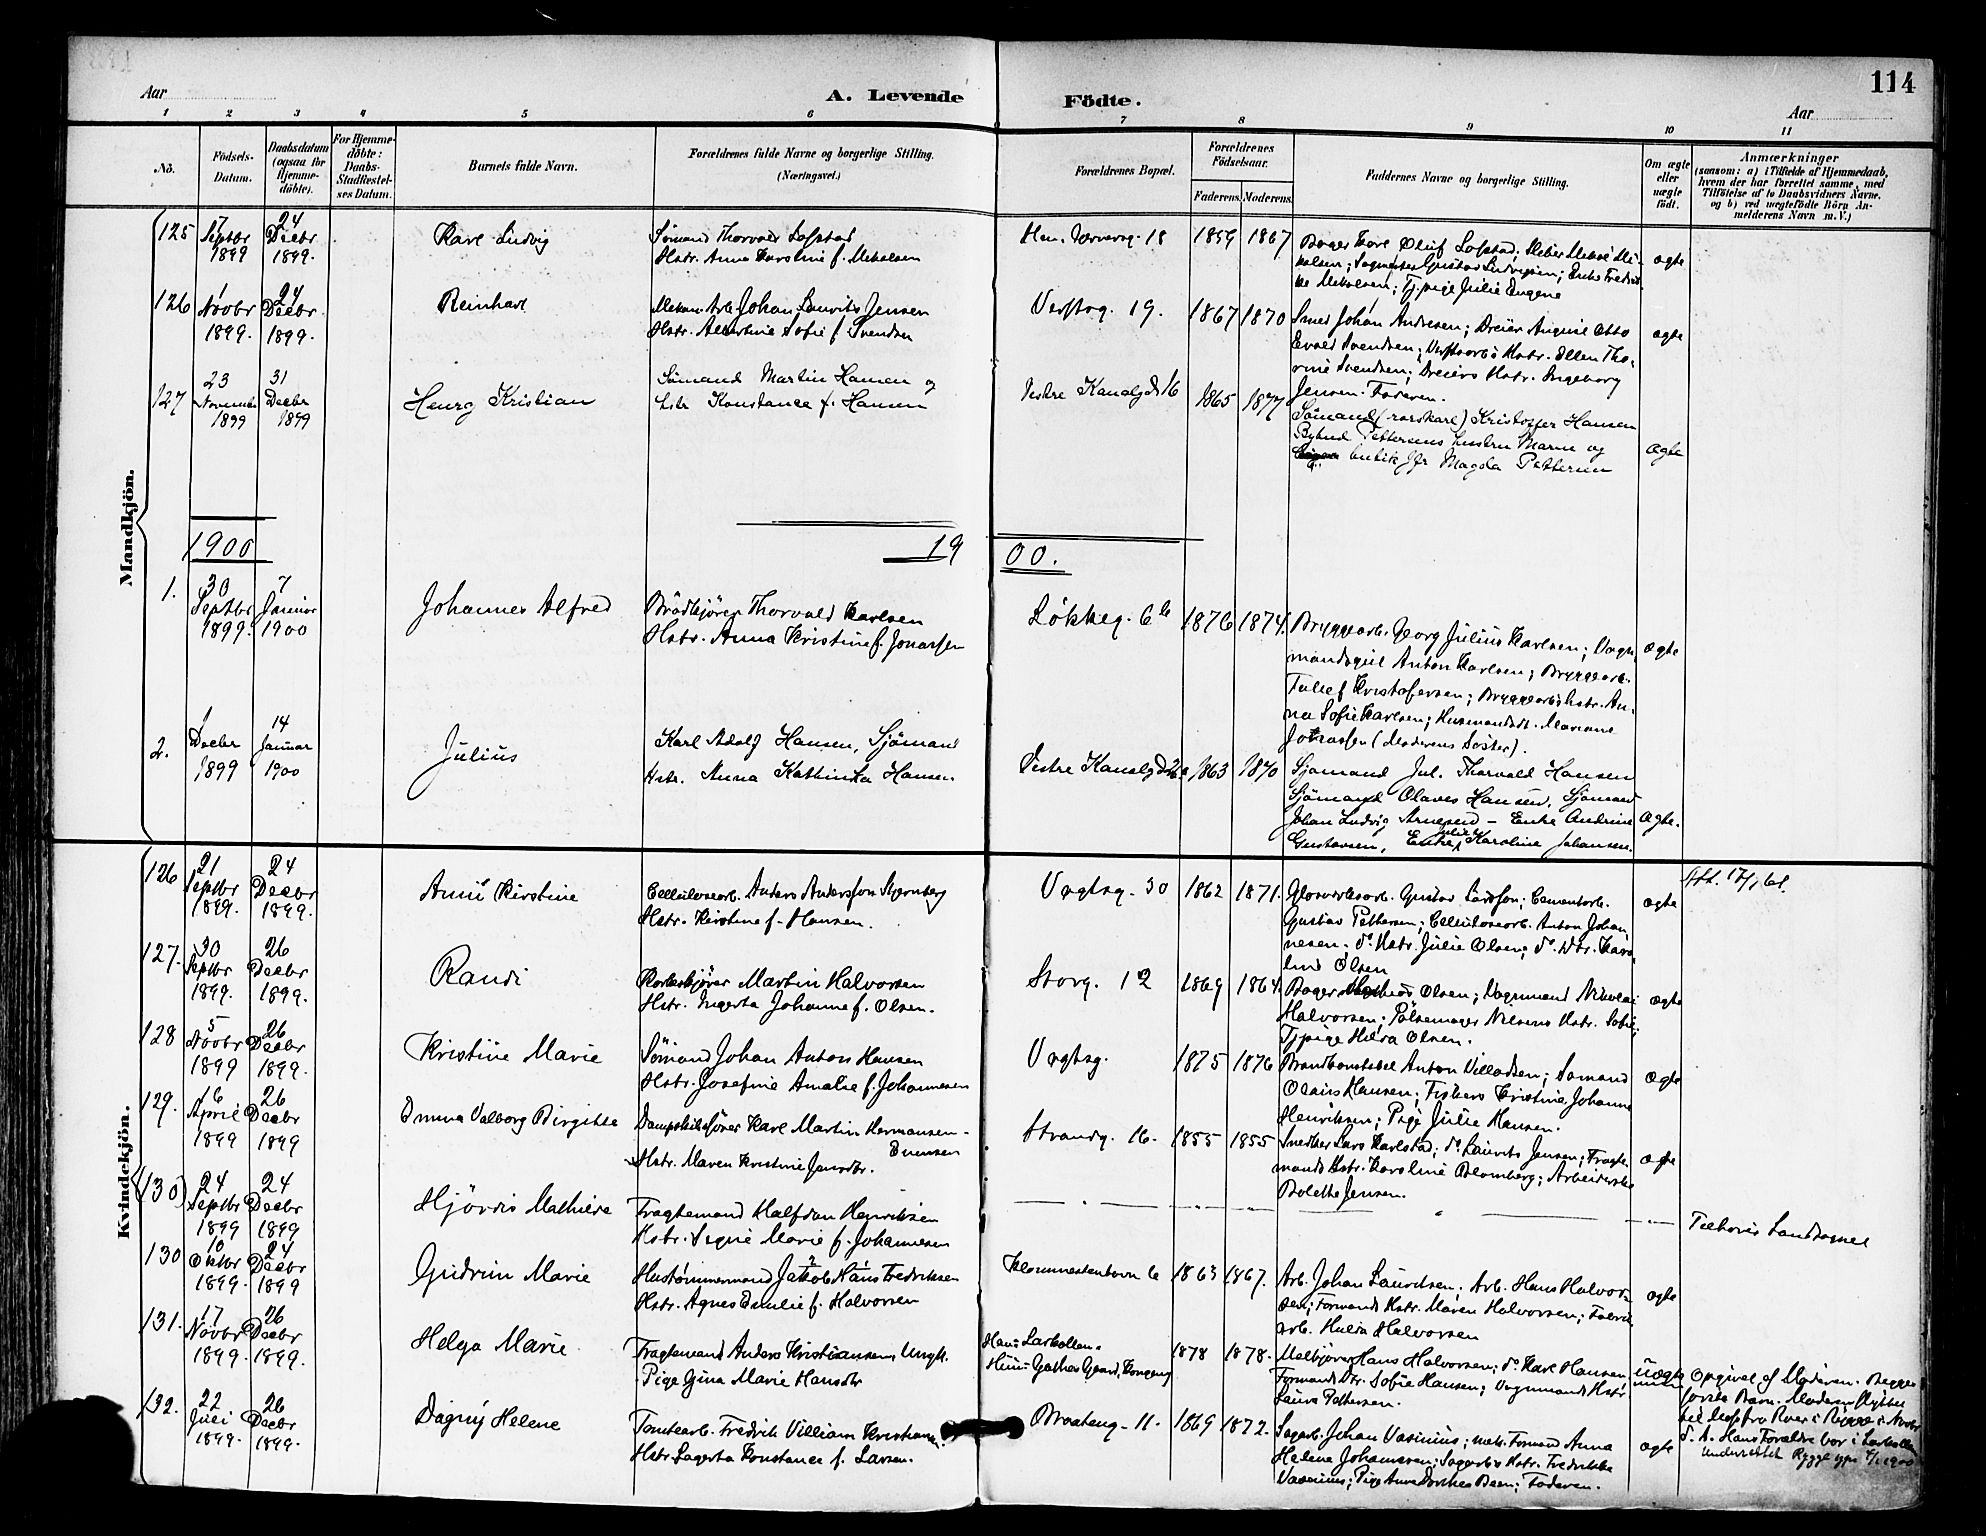 114
Aar
A. Levende Födte.
Aar
1 2 3 4 5 6 7 8 9 10 11
No.
Födsels-Datum.
Daabsdatum (ogsaa for Hjemme-döbte).
For Hjemme-döbte: Daabs-Stadfæstel-ses Datum.
Barnets fulde Navn.
Forældrenes fulde Navne og borgerlige Stilling. (Næringsvei.)
Forældrenes Bopæl.
Forældrenes Födselsaar.
Faderens. Moderens.
Faddernes Navne og borgerlige Stilling.
Om ægte eller uægte födt.
Anmærkninger
(saasom: a) i Tilfælde af Hjemmedaab, hvem der har forrettet samme, med Tilföielse af to Daabsvidners Navne, og b) ved uægtefödte Börn An-melderens Navn m. V.)
Mandkjön.
125 7 Septbr 1899 24 Decbr 1899.
Karl Ludvig
Sømand Thorvald Lofstad
Hstr. Anna Karoline f. Mikalsen
18 1859 1867
ægte
126 1 Novbr 1899. 24 Decbr 1899.
Reinhart
Mekan. Arb. Johan Laurits Jensen
Hstr. Albertine Sofie f. Svendsen
Verftsg. 19. 1867 1870
Smed Johan Andresen; Dreier August Otto
Evald Svendsen; Verftsarb's Hstr. Ellen Tho-
rine Svendsen; Dreiers Hstr. Ingeborg
Jensen. Faderen.
ægte
127 23 November 1899 31 Decbr 1899
Henry Kristian
Sömand Martin Hansen og
Hstr Konstance f. Hansen
Vestre Kanalgd 16 1865 1877
Sömand (rorskarl) Kristoffer Hansen
Pettersens hustru Marne og
butik jfr Magda Pettersen
Ægte
1900 1900.
1. 30 Septbr 1899. 7 Januar 1900
Johannes Alfred
Brödkjörer Thorvald Karlsen
Hstr. Anna Kristine f. Jonassen
Løkkeg. 6b 1876 1874.
Bryggearb. Georg Julius Karlsen; Vogn-
mandsgut Anton Karlsen; Bryggearb.
Tallef Kristofersen; Bryggearb's Hstr. An-
na Sofie Karlsen; Husmandsdt. Mariane
Jonassen (Moderens Søster).
Ægte
2. 1 Decbr 1899 14 Januar 1900
Julius
Karl Adolf Hansen, Sjömand
Hstr. Anna Kathinka Hansen
Vestre Kanalgd 1863 1870
Sjømand Jul. Thorvald Hansen
Sjömand Olaves Hansen, Sjömand
Johan Ludvig Arnesen – Enke Andrine
Gustavsen, Enke Julie Karoline Johansen.
Ægte.
Kvindekjön.
126 21 Septbr 1899. 24 Decbr 1899.
Anni Kirstine
Cellulosearb. Anders Andersson Stjernberg
Hstr. Kirstine f. Hansen.
Vogtsg. 30 1862 1871.
Glasværksarb. Gustav Larsson; Cementarb.
Gustav Pettersen; Cellulosearb. Anton Johan
nesen. do Hstr. Julie Olsen; do. Dtr. Karo-
line Olsen
ægte
127. 30 Septbr 1899. 26 Decbr 1899.
Randi
Martin Halvorsen
Hstr. Ingerta Johanne f. Olsen.
Storg. 12 1869 1864.
Bager Olsen; Vognmand Nikolai
Halvorsen; Pölsemager Nilsens Hstr. Sofie;
Tjpige Hilda Olsen.
ægte
128 5 Novbr 1899 26 Decbr 1899.
Kristine Marie
Sømand Johan Anton Hansen
Hstr. Josefine Amalie f. Johannesen
Vogtsg. 1875 1876
Brandkonstabel Anton Villadsen; Sømand
Olaus Hansen; Fiskers Kristine Johanne
Henriksen; Pige Julie Hansen.
Ægte
129. 16 April 1899 26 Decbr 1899
Emma Valborg Birgitte
Dampskibsfører Karl Martin Hermansen-
Evensen
Hstr. Maren Kristine Jansdtr.
Strandg. 16. 1855 1855
Snedker Lars Karlstad; do. Laurits Jensen; Fragte-
mands Hstr. Karoline Blomberg; Arbeiderske
Bolette Jensen.
ægte
(130) 24 Septbr 1899 24 Decbr 1899
Hjördis Mathilde
Fragtemand Halfdan Henriksen
Hstr. Signe Marie f. Johannesen
Tilhører Landsognet
130 10 Oktbr 1899. 24 Decbr 1899
Gudrun Marie
Hustømmermand Jakob Hans Fredriksen
Hstr. Agnes Emilie f. Halvorsen
6 1863 1867.
Arb. Johan Lauritsen; Arb. Hans Halvor-
sen; Formands Hstr. Maren Halvorsen; Fabrik
arb. Hulda Halvorsen
ægte
131. 17 Novbr 1899. 26 Decbr 1899.
Helga Marie
Fragtemand Anders Kristiansen Ungk.
Pige Gina Marie Hansdtr
Han: Larkollen
Hun: Gaard, Kongeng
1878 1878.
Melkjører Hans Halvorsen; do. Karl Hansen
Formands Dtr. Sofie Hansen; Vognmands Hstr
Laura Pettersen.
uægte
Opgivet af Moderen. Begges
første Barn. Moderen flyttet
til
Hans Forældre bor i Larkollen
Underrettet Rygge
132. 22 Juli 1899. 26 Decbr 1899.
Dagny Helene
Tomtearb. Fredrik Villiam Kristiansen
Hstr. Lagerta Konstance f. Larsen.
Braateng. 11. 1869 1872.
Sagarb. Johan Vasinius; mek. Formand Anna
Helene Johansen; Sagarb's Hstr. Fredrikke
Vasinius; Pige Anne Dorthea Been; Faderen.
ægte